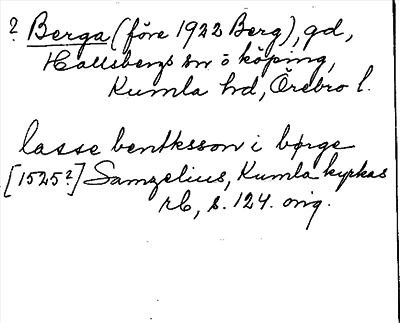 ? Berga (före 1922 Berg), gd,
Hallsbergs sn o köping,
Kumla hd, Örebro l.
lasse bentksson i børge
[1525?] Samzelius, Kumla kyrkas
rb, s. 124. orig.